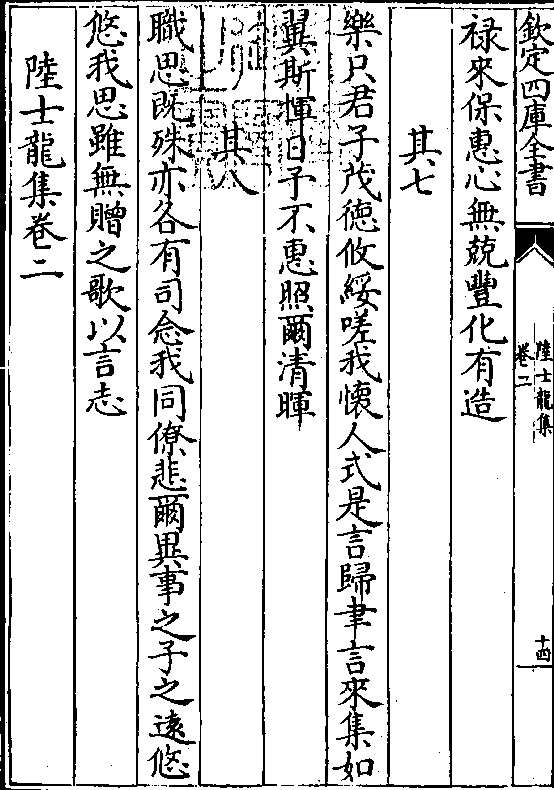 欽定四庫全書
陸士龍集
卷二
十四
禄來保惠心無兢豐化有造
其七
樂只君子茂徳攸綏嗟我懐人式是言歸聿言來集如
翼斯惲日予不惠照爾清暉
其八
職思既殊亦各有司念我同僚悲爾異事之子之逺悠
悠我思雖無贈之歌以言志
陸士龍集卷二